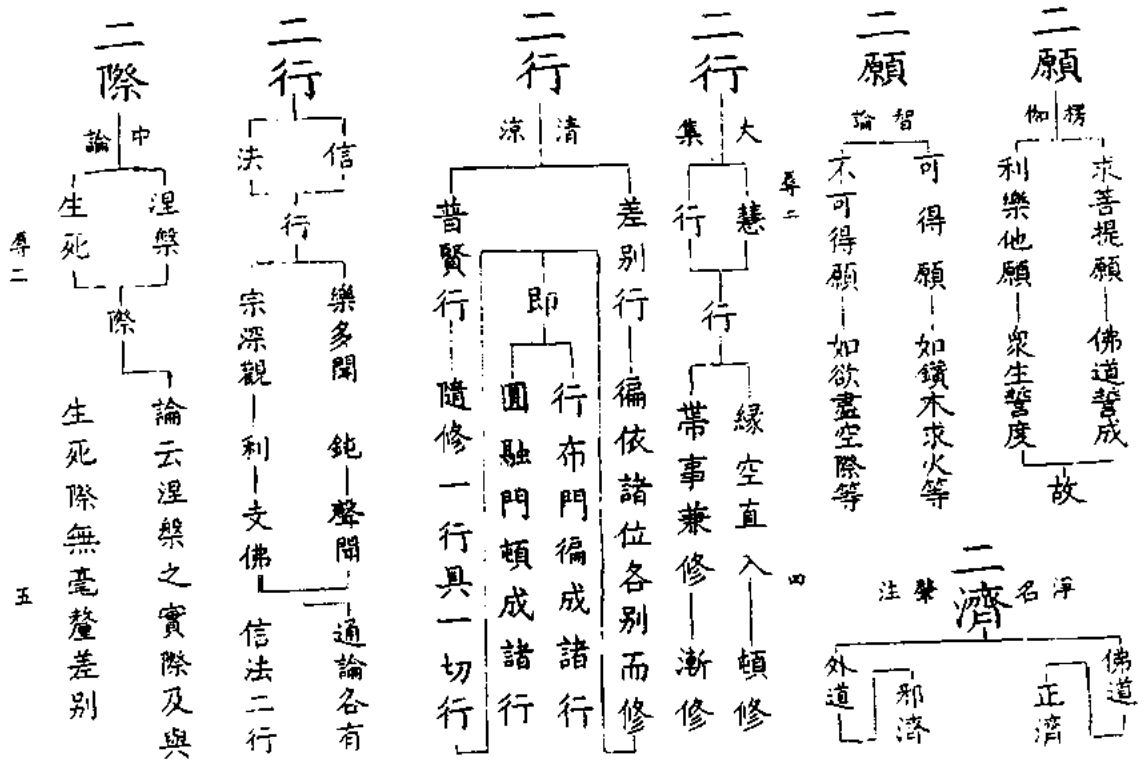 二願
楞伽
求菩提願
佛道誓成
利樂他願
衆生誓度
故
二濟
淨名
肇注
佛道
正濟
外道
邪濟
二願
智論
可得願
如鑽木求火等
不可得願
如欲盡空際等
辱二
四
二行
大集
慧
行
行
緣空直入
頓修
帶事兼修
漸修
二行
清涼
差別行
徧依諸位各別而修
即
行布門徧成諸行
圓融門頓成諸行
普賢行
隨修一行具一切行
二行
信
法
行
樂多聞
鈍
聲聞
宗深觀
利
支佛
通論各有
信法二行
二際
中論
涅槃
生死
際
論云涅槃之實際及與
生死際無毫釐差別
辱二
五